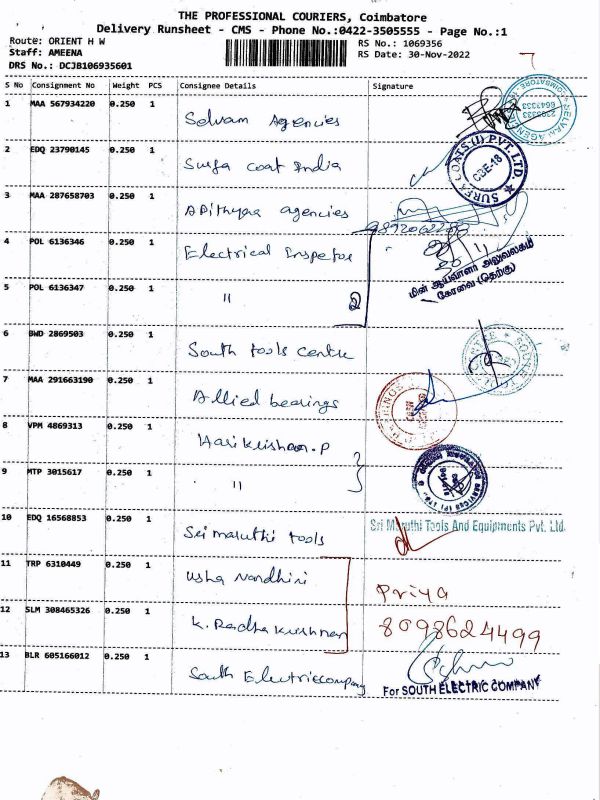 THE PROFESSIONAL COURIERS, Coimbatore
Delivery Runsheet - CMS - Phone No.:0422-3505555 - Page No.:1
Route: ORIENT H W
Staff: AMEENA
DRS No.: DCJB106935601
RS No.: 1069356
RS Date: 30-Nov-2022
S No Consignment No Weight PCS Consignee Details Signature
1 MAA 567934220 0.250 1 Selvam Agencies
2 EDQ 23790145 0.250 1 Surfa Coat India
SURFA COATS(I) PVT. LTD.
CBE-18
3 MAA 287658703 0.250 1 Adithyaa agencies
4 POL 6136346 0.250 1 Electrical Inspetor
5 POL 6136347 0.250 1 "
மின் ஆய்வாளர் அலுவலகம்
கோவை (தெற்கு)
6 BWD 2869503 0.250 1 South tools centre
7 MAA 291663190 0.250 1 Allied bearings
8 VPM 4869313 0.250 1 Harikrishnan.P
9 MTP 3015617 0.250 1 "
10 EDQ 16568853 0.250 1 Sri maruthi tools
Sri Maruthi Tools And Equipments Pvt. Ltd.
11 TRP 6310449 0.250 1 Usha Nandhini
Priya
12 SLM 308465326 0.250 1 K. Radha Krishnan
8098624499
13 BLR 605166012 0.250 1 South Electriccompany
For SOUTH ELECTRIC COMPANY